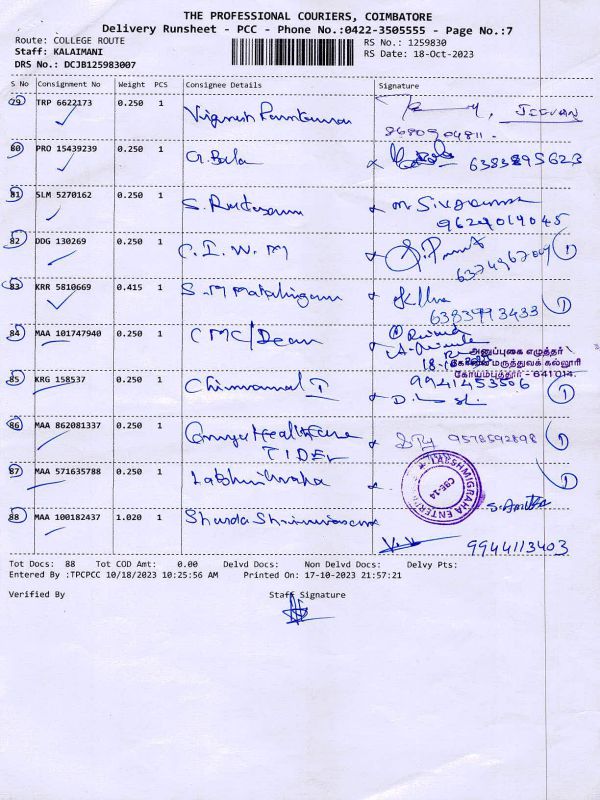 THE PROFESSIONAL COURIERS, COIMBATORE
Delivery Runsheet - PCC - Phone No.:0422-3505555 - Page No.:7
Route: COLLEGE ROUTE
Staff: KALAIMANI
DRS No.: DCJB125983007
RS No.: 1259830
RS Date: 18-Oct-2023
S No Consignment No Weight PCS Consignee Details Signature
79 TRP 6622173 0.250 1 JEEVAN
8680904811.
80 PRO 15439239 0.250 1 G. Bala 6383895623
81 SLM 5270162 0.250 1 S.
9629019045
82 DDG 130269 0.250 1 C.I.W.M
6374967009 1
83 KRR 5810669 0.415 1 S.M Mahalingam
6383993433 1
84 MAA 101747940 0.250 1 CMC/Dean
அனுப்புகை எழுத்தர்
கோவை மருத்துவக் கல்லூரி
கோயம்புத்தூர் - 641014.
85 KRG 158537 0.250 1 Chinnammal T 9941453506
1
86 MAA 862081337 0.250 1 Healthcare 9578592898 1
TIDEL
87 MAA 571635788 0.250 1 1
LAKSHMIGRAHA ENTERP
CBE-14
S. Anitha
88 MAA 100182437 1.020 1 Sharda Shrinivasan
9944113403
Tot Docs: 88 Tot COD Amt: 0.00 Delvd Docs: Non Delvd Docs: Delvy Pts:
Entered By :TPCPCC 10/18/2023 10:25:56 AM Printed On: 17-10-2023 21:57:21
Verified By Staff Signature